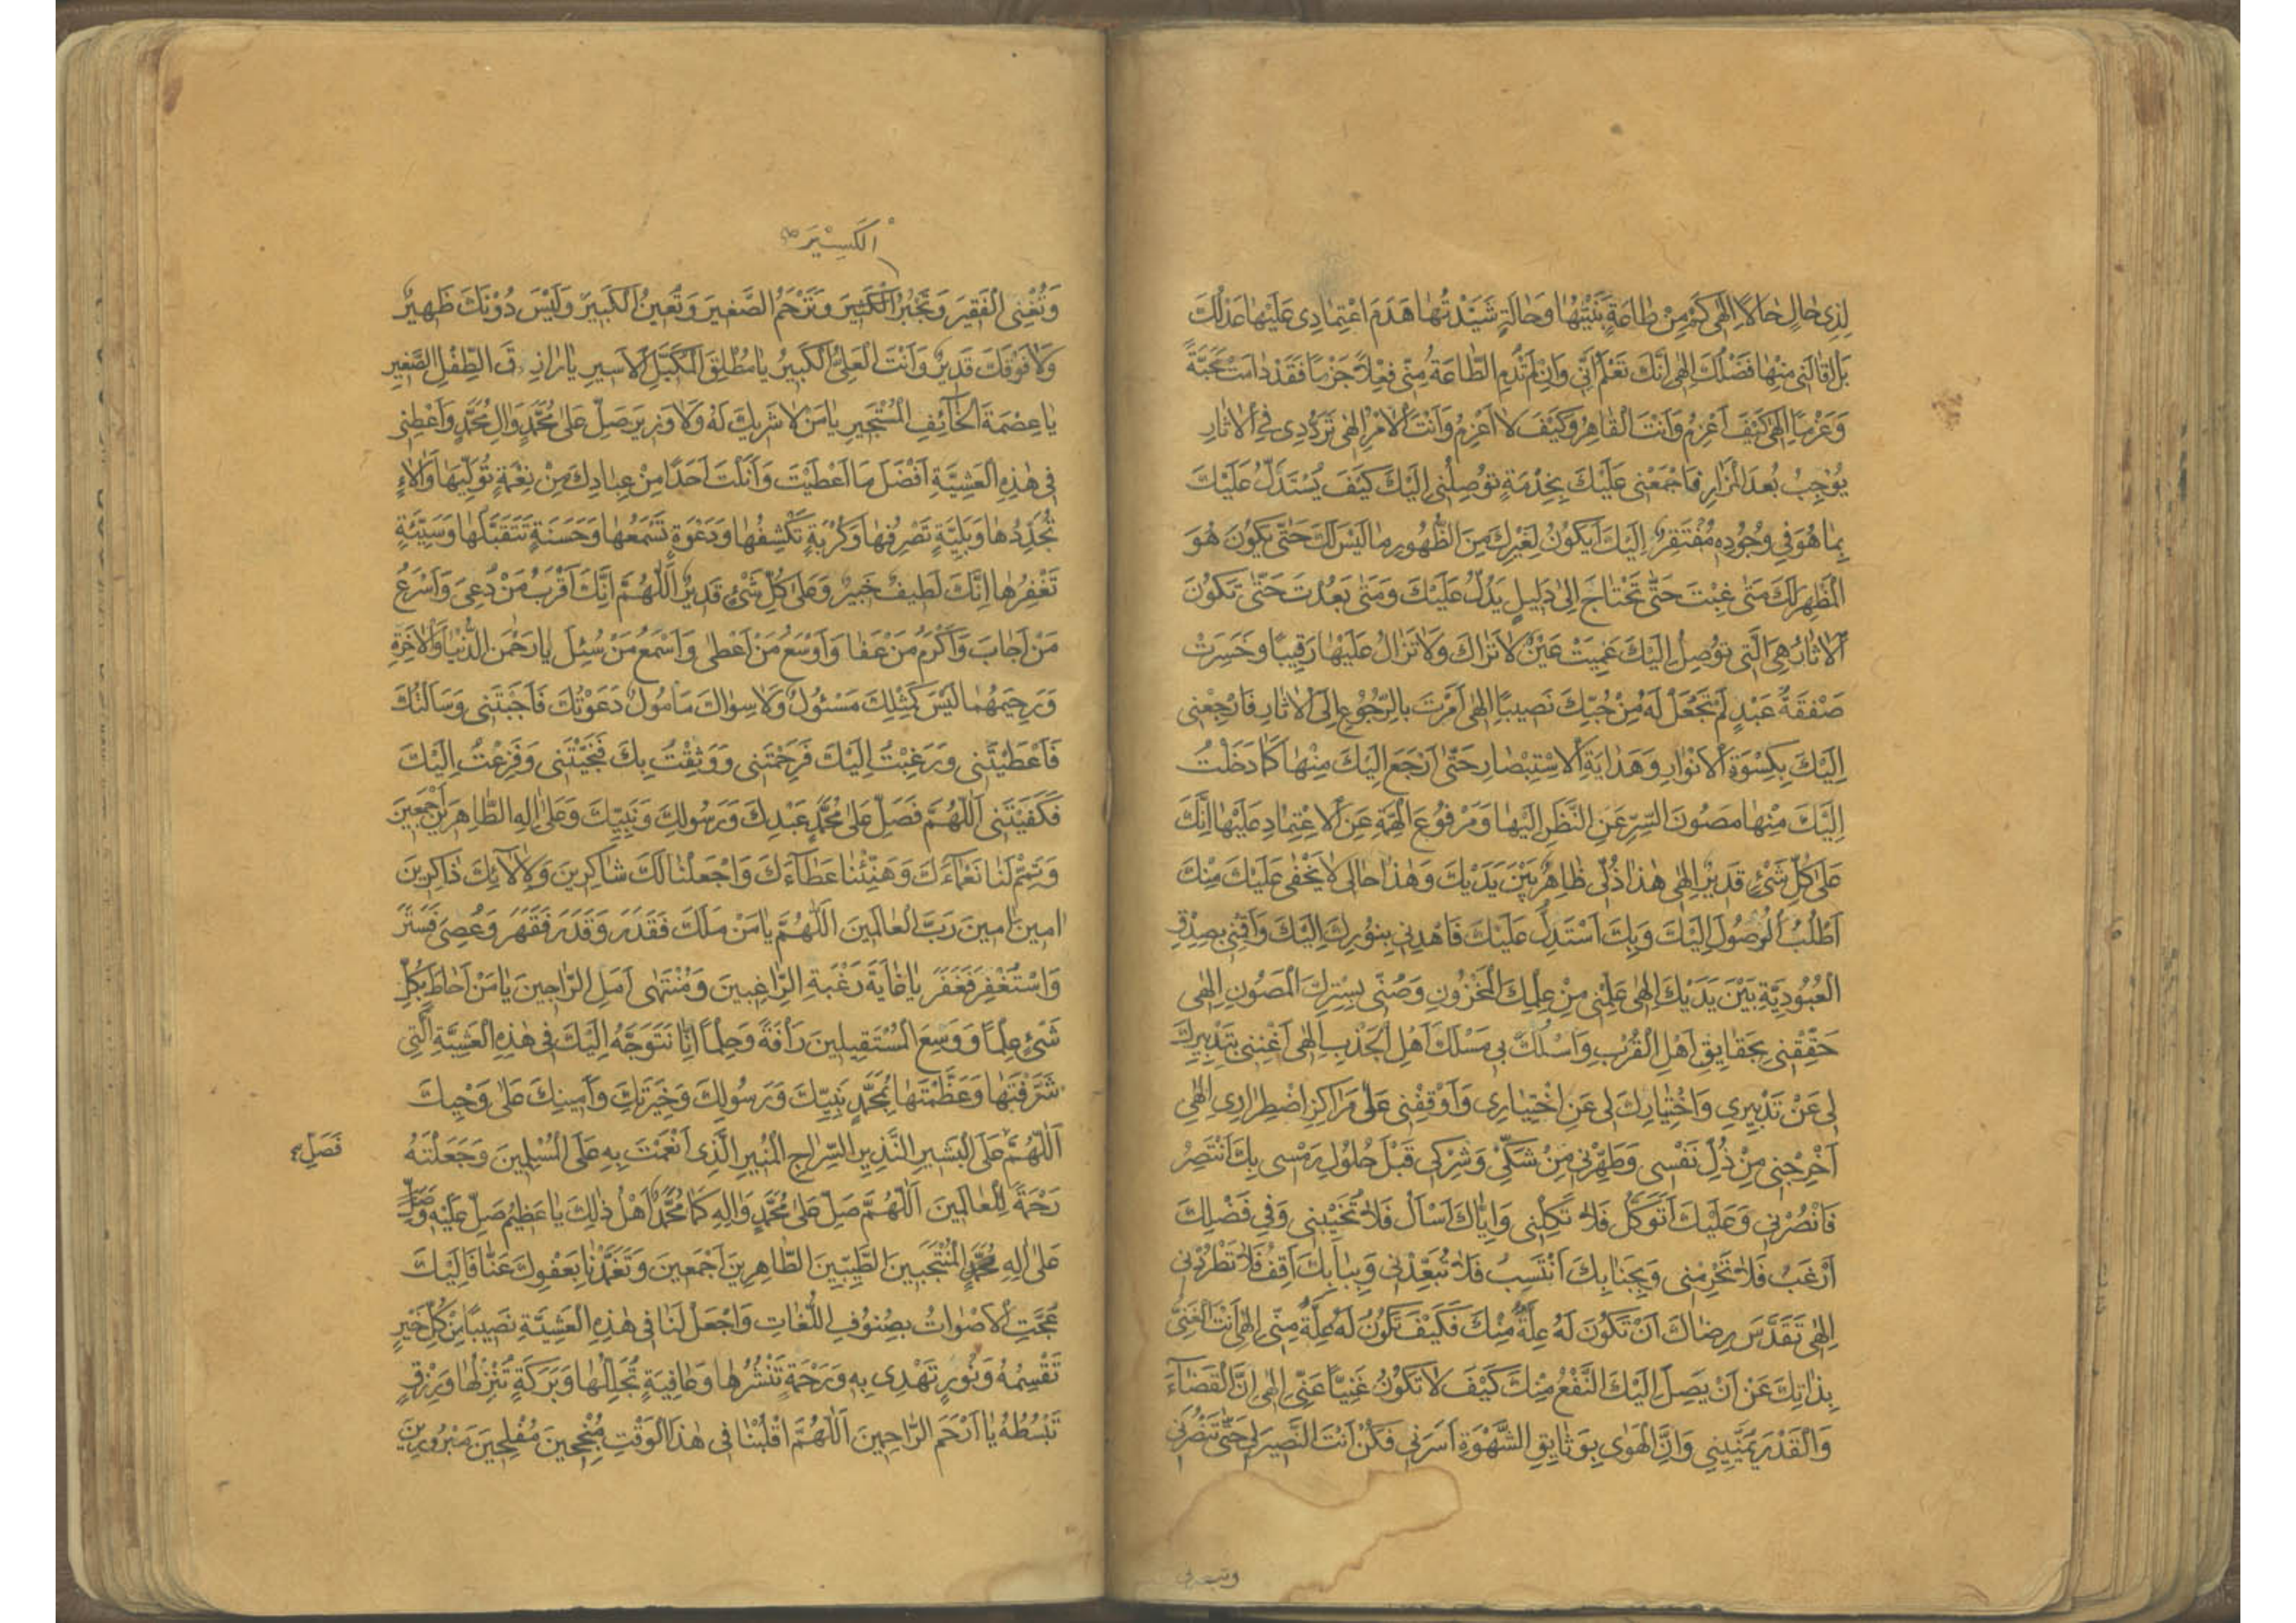 لِذِی حٰالٍ حٰالًا اِلٰهی کَمْ مِنْ طٰاعَةٍ بَنَیْتُهٰا وَ حٰالَةٍ شَیَّدْتُهٰا هَدَمَ اعْتِمٰادِی عَلَیْهٰا عَدْلُكَ
بَلْ اَقٰالَنِی مِنْهٰا فَضْلُكَ اِلٰهی اِنَّكَ تَعْلَمُ اَنِّی وَ اِنْ لَمْ تَدُمِ الطّٰاعَةُ مِنِّی فِعْلًا جَزْمًا فَقَدْ دٰامَتْ مَحَبَّةً
وَ عَزْمًا اِلٰهی کَیْفَ اَعْزِمُ وَ اَنْتَ الْقٰاهِرُ وَ کَیْفَ لٰا اَعْزِمُ وَ اَنْتَ الْاٰمِرُ اِلٰهی تَرَدُّدِی فِی الْاٰثٰارِ
یُوْجِبُ بُعْدَ الْمَزٰارِ فَاجْمَعْنِی عَلَیْكَ بِخِدْمَةٍ تُوْصِلُنِی اِلَیْكَ کَیْفَ یُسْتَدَلُّ عَلَیْكَ
بِمٰا هُوَ فِی وُجُودِهِ مُفْتَقِرٌ اِلَیْكَ اَیَکُونُ لِغَیْرِكَ مِنَ الظُّهُورِ مٰا لَیْسَ لَكَ حَتّٰی یَکُونَ هُوَ
الْمُظْهِرَ لَكَ مَتٰی غِبْتَ حَتّٰی تَحْتٰاجَ اِلٰی دَلِیلٍ یَدُلُّ عَلَیْكَ وَ مَتٰی بَعُدْتَ حَتّٰی تَکُونَ
الْاٰثٰارُ هِیَ الَّتِی تُوْصِلُ اِلَیْكَ عَمِیَتْ عَیْنٌ لٰا تَرٰاكَ وَ لٰا تَزٰالُ عَلَیْهٰا رَقِیبًا وَ خَسِرَتْ
صَفْقَةُ عَبْدٍ لَمْ تَجْعَلْ لَهُ مِنْ حُبِّكَ نَصِیبًا اِلٰهی اَمَرْتَ بِالرُّجُوْعِ اِلَی الْاٰثٰارِ فَارْجِعْنِی
اِلَیْكَ بِکِسْوَةِ الْاَنْوٰارِ وَ هَدٰایَةِ الْاِسْتِبْصٰارِ حَتّٰی اَرْجِعَ اِلَیْكَ مِنْهٰا کَمٰا دَخَلْتُ
اِلَیْكَ مِنْهٰا مَصُونَ السِّرِّ عَنِ النَّظَرِ اِلَیْهٰا وَ مَرْفُوعَ الْهِمَّةِ عَنِ الْاِعْتِمٰادِ عَلَیْهٰا اِنَّكَ
عَلٰی کُلِّ شَیْءٍ قَدِیرٌ اِلٰهی هٰذٰا ذُلِّی ظٰاهِرٌ بَیْنَ یَدَیْكَ وَ هٰذٰا حٰالِی لٰا یَخْفٰی عَلَیْكَ مِنْكَ
اَطْلُبُ الْوُصُولَ اِلَیْكَ وَ بِكَ اَسْتَدِلُّ عَلَیْكَ فَاهْدِنِی بِنُورِكَ اِلَیْكَ وَ اَقِمْنِی بِصِدْقِ
الْعُبُودِیَّةِ بَیْنَ یَدَیْكَ اِلٰهی عَلِّمْنِی مِنْ عِلْمِكَ الْمَخْزُونِ وَ صُنِّی بِسِتْرِكَ الْمَصُونِ اِلٰهی
حَقِّقْنِی بِحَقٰایِقِ اَهْلِ الْقُرْبِ وَ اسْلُكْ بِی مَسْلَكَ اَهْلِ الْجَذْبِ اِلٰهی اَغْنِنِی بِتَدْبِیرِكَ
لِی عَنْ تَدْبِیرِی وَ اخْتِیٰارِكَ لِی عَنِ اخْتِیٰارِی وَ اَوْقِفْنِی عَلٰی مَرٰاکِزِ اضْطِرٰارِی اِلٰهی
اَخْرِجْنِی مِنْ ذُلِّ نَفْسِی وَ طَهِّرْنِی مِنْ شَکِّی وَ شِرْکِی قَبْلَ حُلُولِ رَمْسِی بِكَ اَنْتَصِرُ
فَانْصُرْنِی وَ عَلَیْكَ اَتَوَکَّلُ فَلٰا تَکِلْنِی وَ اِیّٰاكَ اَسْاَلُ فَلٰا تُخَیِّبْنِی وَ فِی فَضْلِكَ
اَرْغَبُ فَلٰا تَحْرِمْنِی وَ بِجَنٰابِكَ اَنْتَسِبُ فَلٰا تُبَعِّدْنِی وَ بِبٰابِكَ اَقِفُ فَلٰا تَطْرُدْنِی
اِلٰهی تَقَدَّسَ رِضٰاكَ اَنْ تَکُونَ لَهُ عِلَّةٌ مِنْكَ فَکَیْفَ تَکُونُ لَهُ عِلَّةٌ مِنِّی اِلٰهی اَنْتَ الْغَنِیُّ
بِذٰاتِكَ عَنْ اَنْ یَصِلَ اِلَیْكَ النَّفْعُ مِنْكَ کَیْفَ لٰا تَکُونُ غَنِیًّا عَنِّی اِلٰهی اِنَّ الْقَضٰآءَ
وَ الْقَدَرَ یُمَنِّینِی وَ اِنَّ الْهَوٰی بِوَثٰایِقِ الشَّهْوَةِ اَسَرَنِی فَکُنْ اَنْتَ النَّصِیرَ لِی حَتّٰی تَنْصُرَنِی
وتبصرنی
الْکَسِیْرَ
وَ تُغْنِی الْفَقِیرَ وَ تَجْبُرُ الْکَسِیرَ وَ تَرْحَمُ الصَّغِیرَ وَ تُعِینُ الْکَبِیرَ وَ لَیْسَ دُوْنَكَ ظَهِیرٌ
وَ لٰا فَوْقَكَ قَدِیرٌ وَ اَنْتَ الْعَلِیُّ الْکَبِیرُ یٰا مُطْلِقَ الْمُکَبَّلِ الْاَسِیرِ یٰا رٰازِقَ الطِّفْلِ الصَّغِیرِ
یٰا عِصْمَةَ الْخٰآئِفِ الْمُسْتَجِیرِ یٰا مَنْ لٰا شَرِیكَ لَهُ وَ لٰا وَزِیرَ صَلِّ عَلٰی مُحَمَّدٍ وَ اٰلِ مُحَمَّدٍ وَ اَعْطِنِی
فِی هٰذِهِ الْعَشِیَّةِ اَفْضَلَ مَا اَعْطَیْتَ وَ اَنَلْتَ اَحَدًا مِنْ عِبٰادِكَ مِنْ نِعْمَةٍ تُوَلِّیهٰا وَ اٰلٰاءٍ
تُجَدِّدُهٰا وَ بَلِیَّةٍ تَصْرِفُهٰا وَ کُرْبَةٍ تَکْشِفُهٰا وَ دَعْوَةٍ تَسْمَعُهٰا وَ حَسَنَةٍ تَتَقَبَّلُهٰا وَ سَیِّئَةٍ
تَغْفِرُهٰا اِنَّكَ لَطِیفٌ خَبِیرٌ وَ عَلٰی کُلِّ شَیْءٍ قَدِیرٌ اَللّٰهُمَّ اِنَّكَ اَقْرَبُ مَنْ دُعِیَ وَ اَسْرَعُ
مَنْ اَجٰابَ وَ اَکْرَمُ مَنْ عَفٰا وَ اَوْسَعُ مَنْ اَعْطٰی وَ اَسْمَعُ مَنْ سُئِلَ یٰا رَحْمٰنَ الدُّنْیٰا وَ الْاٰخِرَةِ
وَ رَحِیمَهُمٰا لَیْسَ کَمِثْلِكَ مَسْئُولٌ وَ لٰا سِوٰاكَ مَاْمُولٌ دَعَوْتُكَ فَاَجَبْتَنِی وَ سَاَلْتُكَ
فَاَعْطَیْتَنِی وَ رَغِبْتُ اِلَیْكَ فَرَحِمْتَنِی وَ وَثِقْتُ بِكَ فَنَجَّیْتَنِی وَ فَزِعْتُ اِلَیْكَ
فَکَفَیْتَنِی اَللّٰهُمَّ فَصَلِّ عَلٰی مُحَمَّدٍ عَبْدِكَ وَ رَسُولِكَ وَ نَبِیِّكَ وَ عَلٰی اٰلِهِ الطّٰاهِرِینَ اَجْمَعِینَ
وَ تَمِّمْ لَنٰا نَعْمٰآءَكَ وَ هَنِّئْنٰا عَطٰآءَكَ وَ اجْعَلْنٰا لَكَ شٰاکِرِینَ وَ لِاٰلٰآئِكَ ذٰاکِرِینَ
اٰمِینَ اٰمِینَ رَبَّ الْعٰالَمِینَ اَللّٰهُمَّ یٰا مَنْ مَلَكَ فَقَدَرَ وَ قَدَرَ فَقَهَرَ وَ عُصِیَ فَسَتَرَ
وَ اسْتُغْفِرَ فَغَفَرَ یٰا غٰایَةَ رَغْبَةِ الرّٰاغِبِینَ وَ مُنْتَهٰی اَمَلِ الرّٰاجِینَ یٰا مَنْ اَحٰاطَ بِکُلِّ
شَیْءٍ عِلْمًا وَ وَسِعَ الْمُسْتَقِیلِینَ رَاْفَةً وَ حِلْمًا اِنّٰا نَتَوَجَّهُ اِلَیْكَ فِی هٰذِهِ الْعَشِیَّةِ الَّتِی
شَرَّفْتَهٰا وَ عَظَّمْتَهٰا بِمُحَمَّدٍ نَبِیِّكَ وَ رَسُولِكَ وَ خِیَرَتِكَ وَ اَمِینِكَ عَلٰی وَحْیِكَ
اَللّٰهُمَّ عَلَی الْبَشِیرِ النَّذِیرِ السِّرٰاجِ الْمُنِیرِ الَّذِی اَنْعَمْتَ بِهِ عَلَی الْمُسْلِمِینَ وَ جَعَلْتَهُ
فَصَلِّ
رَحْمَةً لِلْعٰالَمِینَ اَللّٰهُمَّ صَلِّ عَلٰی مُحَمَّدٍ وَ اٰلِهِ کَمٰا مُحَمَّدٌ اَهْلُ ذٰلِكَ یٰا عَظِیمُ صَلِّ عَلَیْهِ وَ صَلِّ
عَلٰی اٰلِهِ مُحَمَّدٍ الْمُنْتَجَبِینَ الطَّیِّبِینَ الطّٰاهِرِینَ اَجْمَعِینَ وَ تَغَمَّدْنٰا بِعَفْوِكَ عَنّٰا فَاِلَیْكَ
عَجَّتِ الْاَصْوٰاتُ بِصُنُوفِ اللُّغٰاتِ وَ اجْعَلْ لَنٰا فِی هٰذِهِ الْعَشِیَّةِ نَصِیبًا مِنْ کُلِّ خَیْرٍ
تَقْسِمُهُ وَ نُورٍ تَهْدِی بِهِ وَ رَحْمَةٍ تَنْشُرُهٰا وَ عٰافِیَةٍ تُجَلِّلُهٰا وَ بَرَکَةٍ تُنْزِلُهٰا وَ رِزْقٍ
تَبْسُطُهُ یٰا اَرْحَمَ الرّٰاحِمِینَ اَللّٰهُمَّ اقْلِبْنٰا فِی هٰذَا الْوَقْتِ مُنْجِحِینَ مُفْلِحِینَ مَبْرُورِینَ